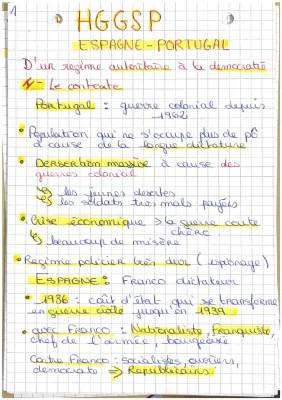 1
HGGSP
ESPAGNE - PORTUGAL
D'un regime autoritaire à la democratie
- Le contexte
Portugal : guerre colonial depuis
1962
• Population qui ne s'occupe plus de pb
à cause de la longue dictature
• Desertion massive à cause des
guerres colonial
↳ les jeunes desertes
↳ les soldats tres mals payées
• Crise économique → la guerre coute
chère
↳ beaucoup de misère
• Regime policier très dur (espionage)
ESPAGNE : Franco dictateur
• 1936 : coût d'état qui se transforme
en guerre civile jusqu'en 1939
• avec Franco : Nationaliste, franquiste,
chef de l'armée, bourgeoisie
Contre Franco : socialistes, ouvriers,
democrate ⇒ Republicains